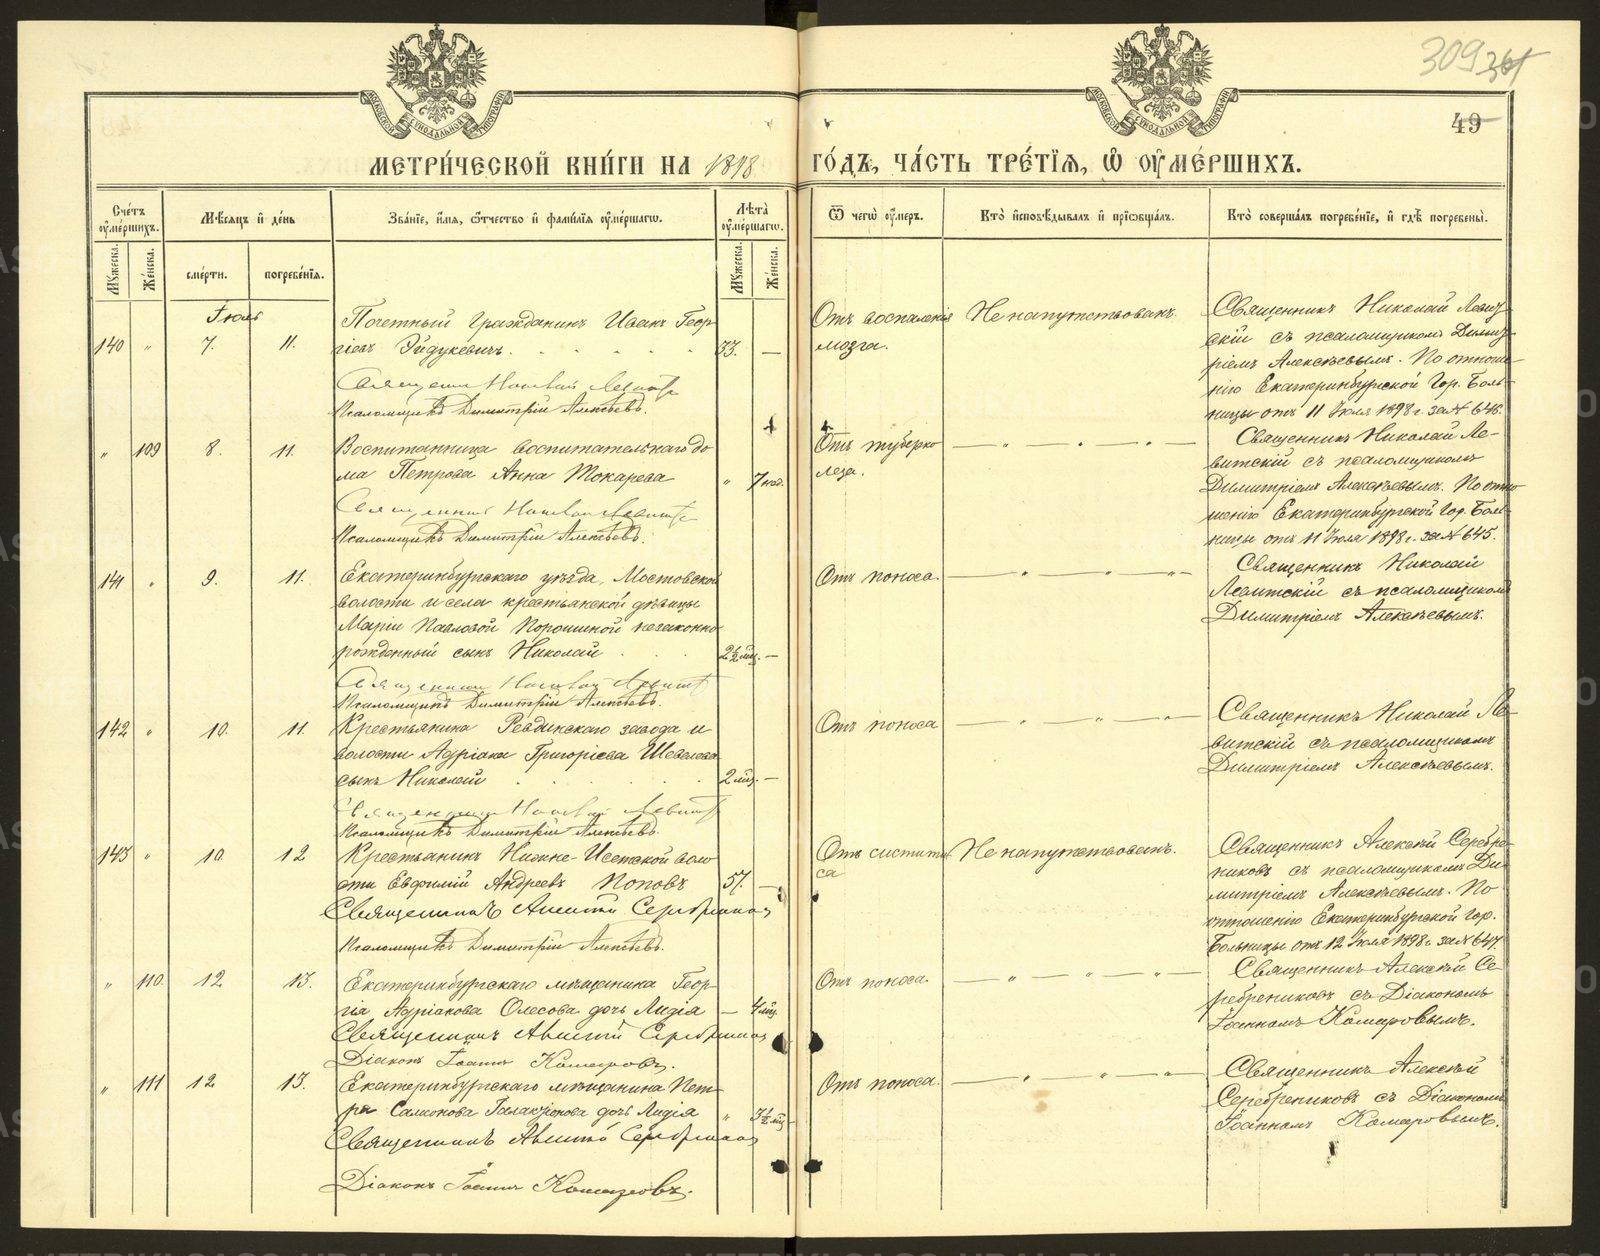 309 301
49
МОСКОВСКОЙ СѴНОДАЛЬНОЙ ТИПОГРАФІИ
МОСКОВСКОЙ СѴНОДАЛЬНОЙ ТИПОГРАФІИ
МЕТРИ́ЧЕСКОЙ КНИ́ГИ НА 1898 ГО́ДЪ, ЧА́СТЬ ТРЕ́ТІѦ, Ѽ ОУ҆МЕ́РШИХЪ.
Сче́тъ оу҆ме́ршихъ.
Мѣ́сяцъ и҆ де́нь
Зва́нїе, и҆́мѧ, ѻ҆́тчество и҆ фами́лїѧ оу҆ме́ршагѡ.
Лѣ́та оу҆ме́ршагѡ.
Ѿ чегѡ̀ оу҆́меръ.
Кто̀ и҆сповѣ́дывалъ и҆ прїѻбща́лъ.
Кто̀ соверша́лъ погребе́нїе, и҆ гдѣ̀ погребены̀.
Мꙋ́жеска.
Же́нска.
сме́рти.
погребе́нїѧ.
Мꙋ́жеска.
Же́нска.
Іюль
140 " 7. 11.
Почетный Гражданинъ Иванъ Геор-
гіевъ Эйдукевичъ.
33. —
Священникъ Николай Левитскій
Псаломщикъ Димитрій Алексѣевъ.
Отъ воспаленія
мозга.
Не напутствованъ.
Священникъ Николай Левит-
скій съ псаломщикомъ Димит-
ріемъ Алексѣевымъ. По отноше-
нію Екатеринбургской Гор. Боль-
ницы отъ 11 Іюля 1898 г. за № 646.
" 109 8. 11.
Воспитанница воспитательнаго до-
ма Петрова Анна Токарева
" 7 нед.
Священникъ Николай Левитскій
Псаломщикъ Димитрій Алексѣевъ.
Отъ туберко
леза.
— " — " — " —
Священникъ Николай Ле-
витскій съ псаломщикомъ
Димитріемъ Алексѣевымъ. По отно-
шенію Екатеринбургской Гор. Боль-
ницы отъ 11 Іюля 1898 г. за № 645.
141 " 9. 11.
Екатеринбургскаго уѣзда, Мостовской
волости и села крестьянской дѣвицы
Маріи Павловой Порошиной незаконно-
рожденный сынъ Николай
2½ мѣс. —
Священникъ Николай Левитскій
Псаломщикъ Димитрій Алексѣевъ.
Отъ поноса.
— " — " — " —
Священникъ Николай
Левитскій съ псаломщикомъ
Димитріемъ Алексѣевымъ.
142 " 10. 11.
Крестьянина Ревдинскаго завода и
волости Адріана Григорьева Шевелева
сынъ Николай
2 мѣс. —
Священникъ Николай Левитскій
Псаломщикъ Димитрій Алексѣевъ.
Отъ поноса
— " — " — " —
Священникъ Николай Ле-
витскій съ псаломщикомъ
Димитріемъ Алексѣевымъ.
143 " 10. 12
Крестьянинъ Нижне-Исетской воло-
сти Евфимій Андреевъ Поповъ
57. —
Священникъ Алексѣй Серебрениковъ
Псаломщикъ Димитрій Алексѣевъ.
Не напутствованъ.
Священникъ Алексѣй Серебре-
никовъ съ псаломщикомъ Ди-
митріемъ Алексѣевымъ. По
отношенію Екатеринбургской Гор.
Больницы отъ 12 Іюля 1898 г. за № 647.
" 110. 12. 13.
Екатеринбургскаго мѣщанина Геор-
гія Адріанова Олесова дочь Лидія
— 4 мѣс.
Священникъ Алексѣй Серебрениковъ
Діаконъ Іоаннъ Комаровъ.
Отъ поноса.
— " — " — " —
Священникъ Алексѣй Се-
ребрениковъ съ Діакономъ
Іоанномъ Комаровымъ.
" 111 12. 13.
Екатеринбургскаго мѣщанина Пет-
ра Галактіонова дочь Лидія
" 3½ мѣс.
Священникъ Алексѣй Серебрениковъ
Діаконъ Іоаннъ Комаровъ.
Отъ поноса.
— " — " — " —
Священникъ Алексѣй
Серебрениковъ съ Діакономъ
Іоанномъ Комаровымъ.